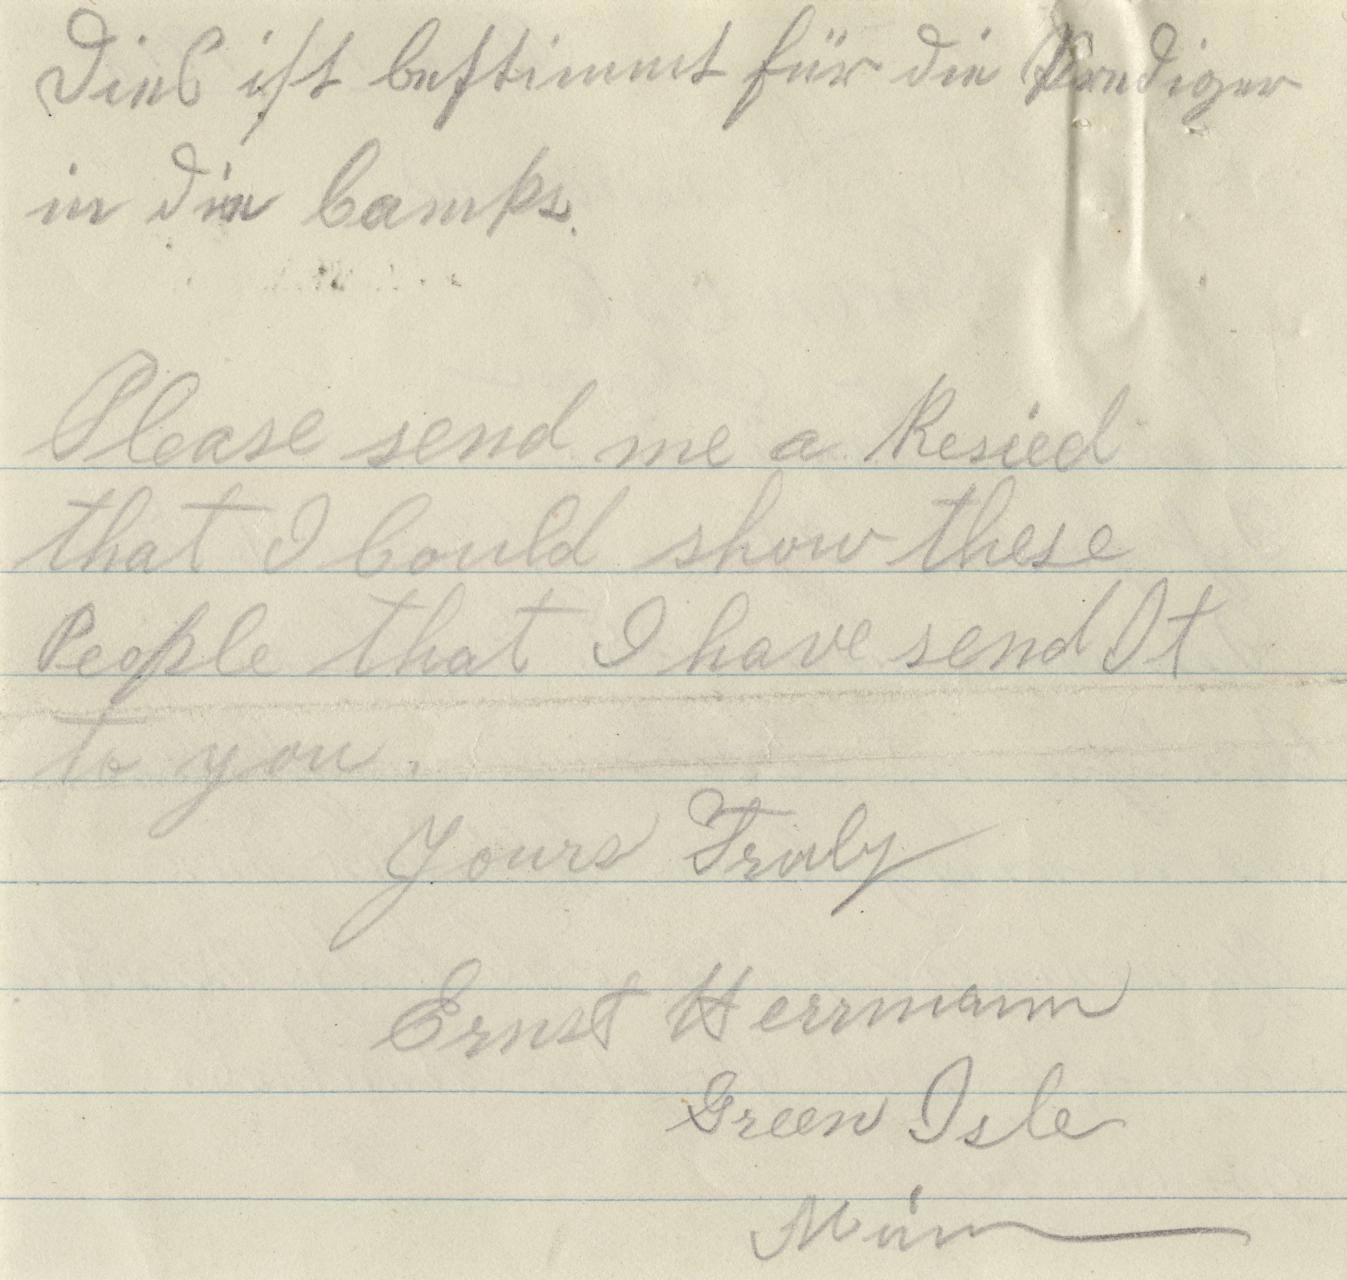 Dies ist bestimmt für die Prediger
in die Camps.
Please send me a Resied
that I Could show these
People that I have send It
to you.
Yours Truly
Ernst Herrmann
Green Isle
Minn